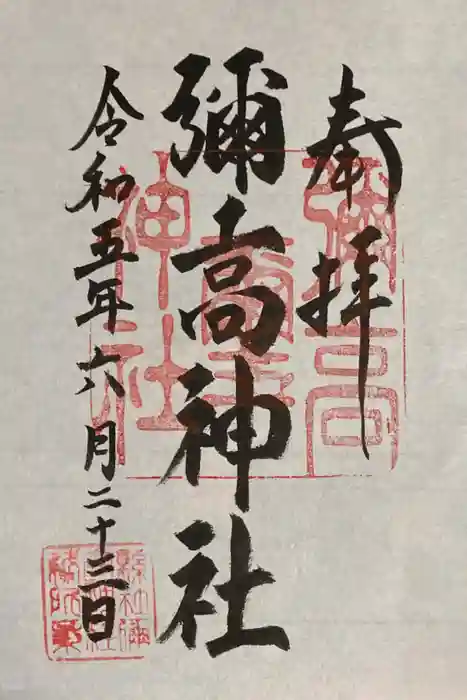 奉拝
彌高神社
令和五年六月二十三日